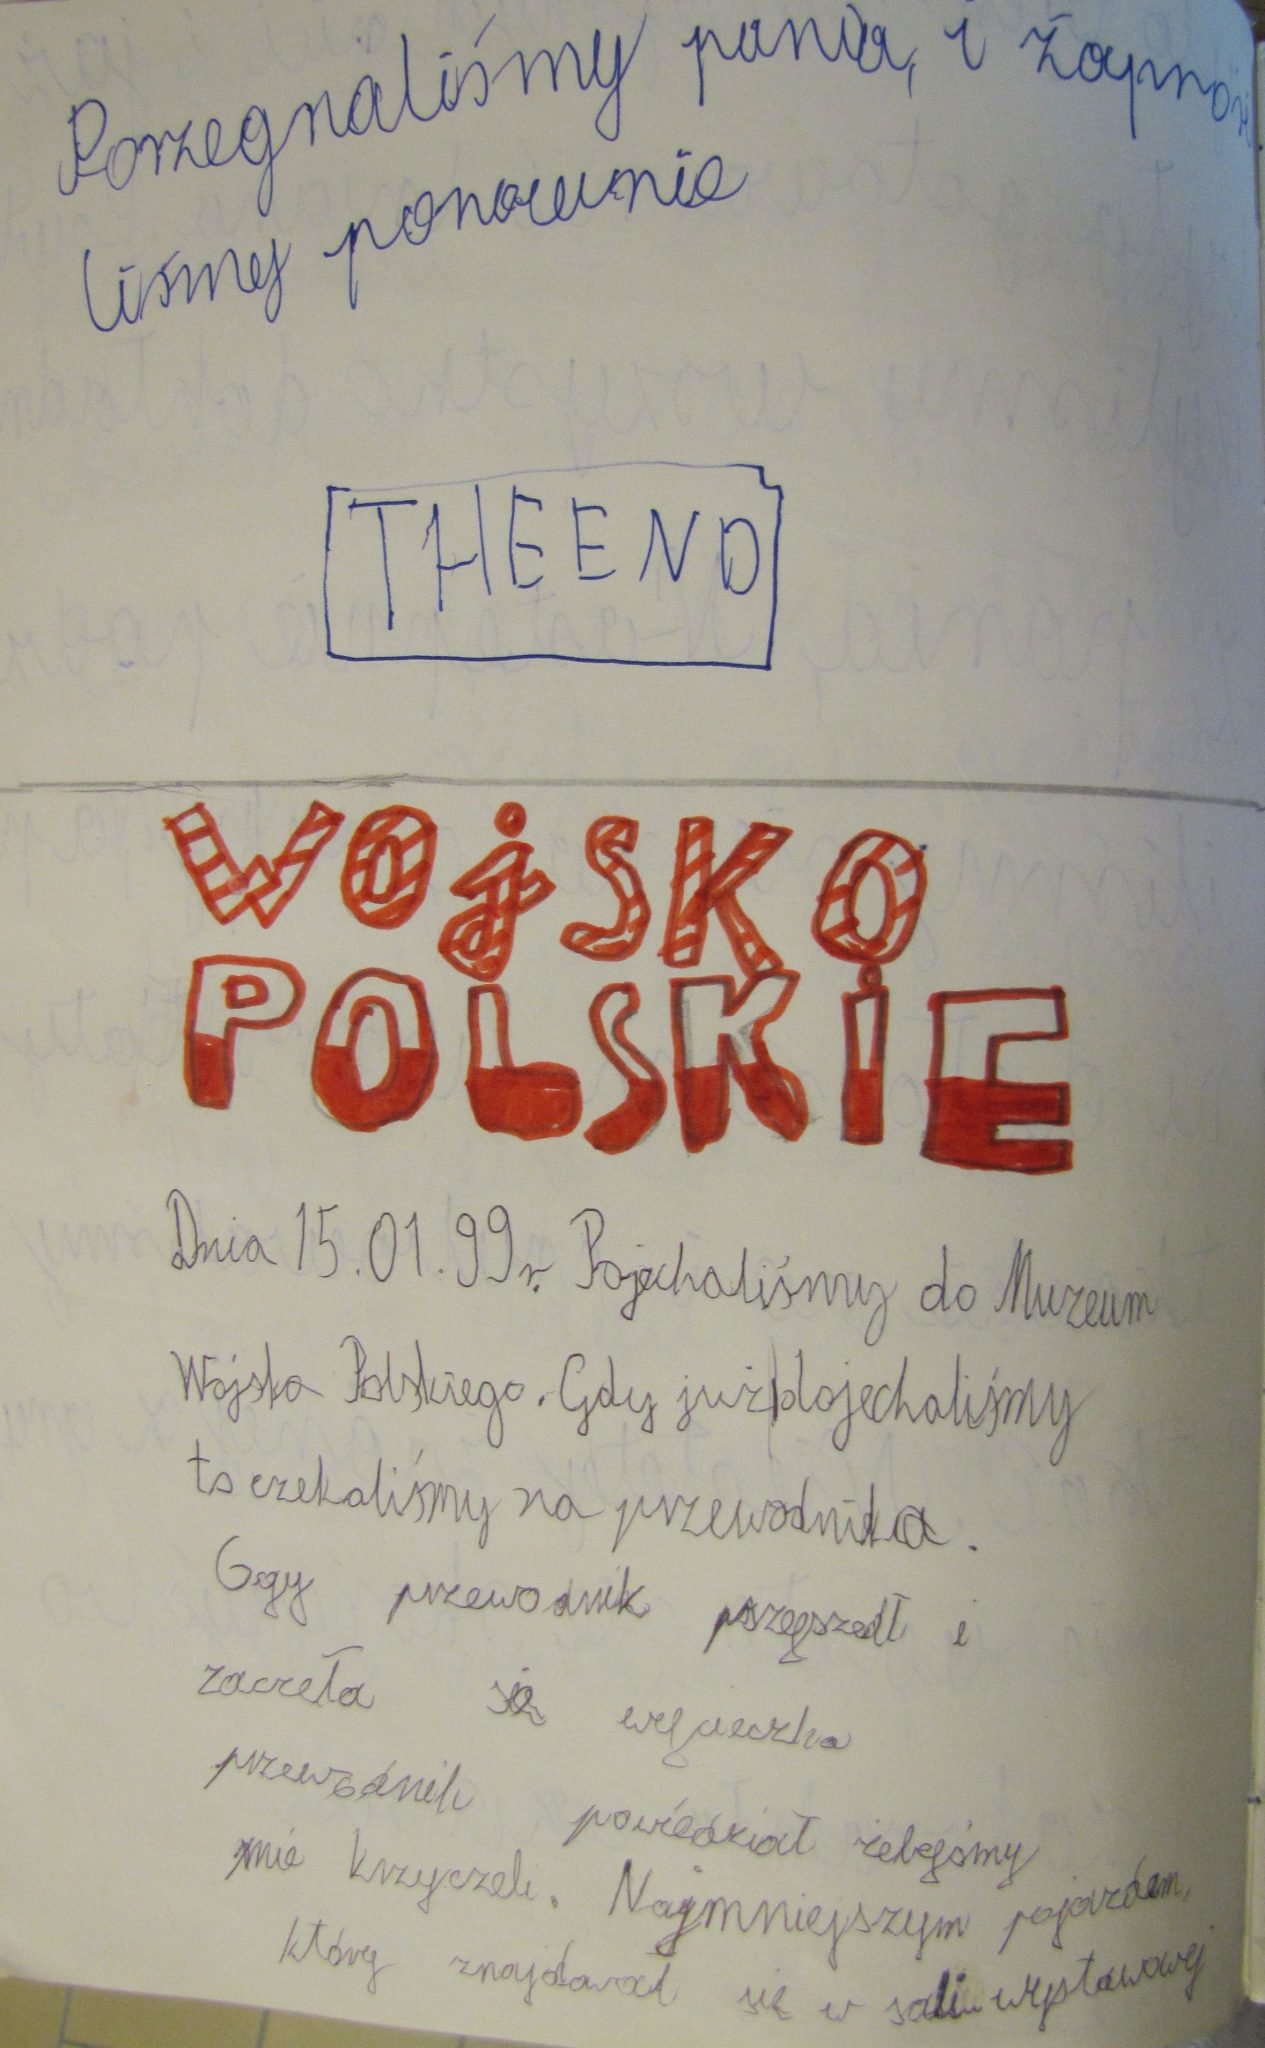 Porzegnaliśmy pania, i żaprosi
liśmy ponownie
THE END
WOjSKO
POLSKiE
Dnia 15.01.99r. Pojechaliśmy do Muzeum
Wojska Polskiego. Gdy już dojechaliśmy
to czekaliśmy na przewodnika.
Gdy przewodnik przyszedł i
zaczeła się wycieczka
przewodnik powiedział żebyśmy
nie krzyczeli. Najmniejszym pojazdem,
który znajdował się w sali wystawowej